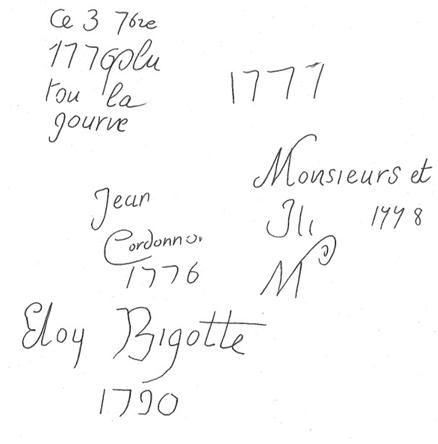 Ce 3 7bre
1779 plu
tou la
gourve
1777
Monsieurs et
Jli 1778
M
Jean
Cordonnor
1776
Eloy Bigotte
1790